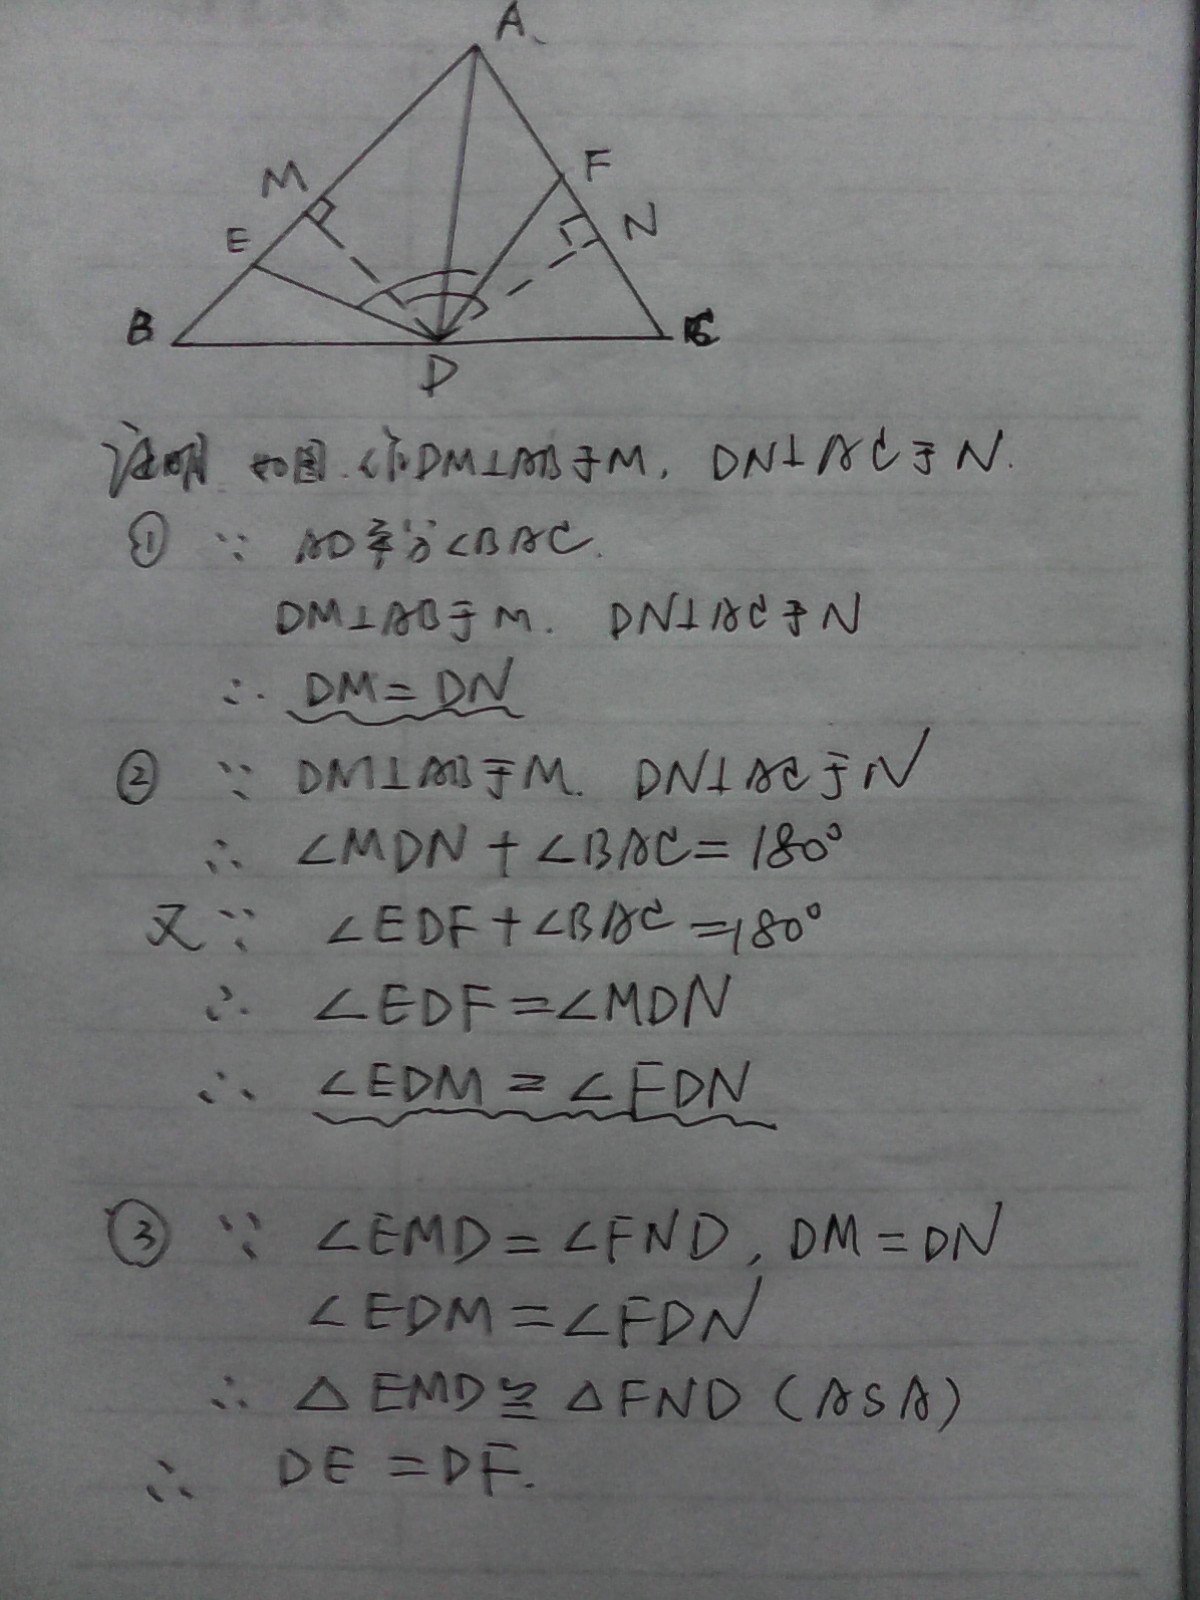 A
M
F
E
N
B
C
D
证明 如图.作DM⊥AB于M, DN⊥AC于N.
① ∵ AD平分∠BAC.
DM⊥AB于M. DN⊥AC于N
∴ DM=DN
② ∵ DM⊥AB于M. DN⊥AC于N
∴ ∠MDN+∠BAC=180°
又∵ ∠EDF+∠BAC=180°
∴ ∠EDF=∠MDN
∴ ∠EDM=∠FDN
③ ∵ ∠EMD=∠FND, DM=DN
∠EDM=∠FDN
∴ △EMD≌△FND (ASA)
∴ DE=DF.